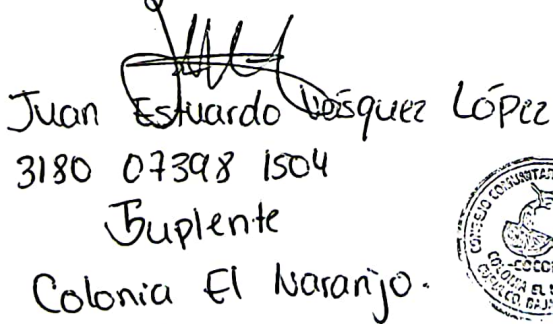 Juan Estuardo Vásquez López
3180 07398 1504
Suplente
Colonia El Naranjo.
CONSEJO COMUNITARIO
COCO
COLONIA EL